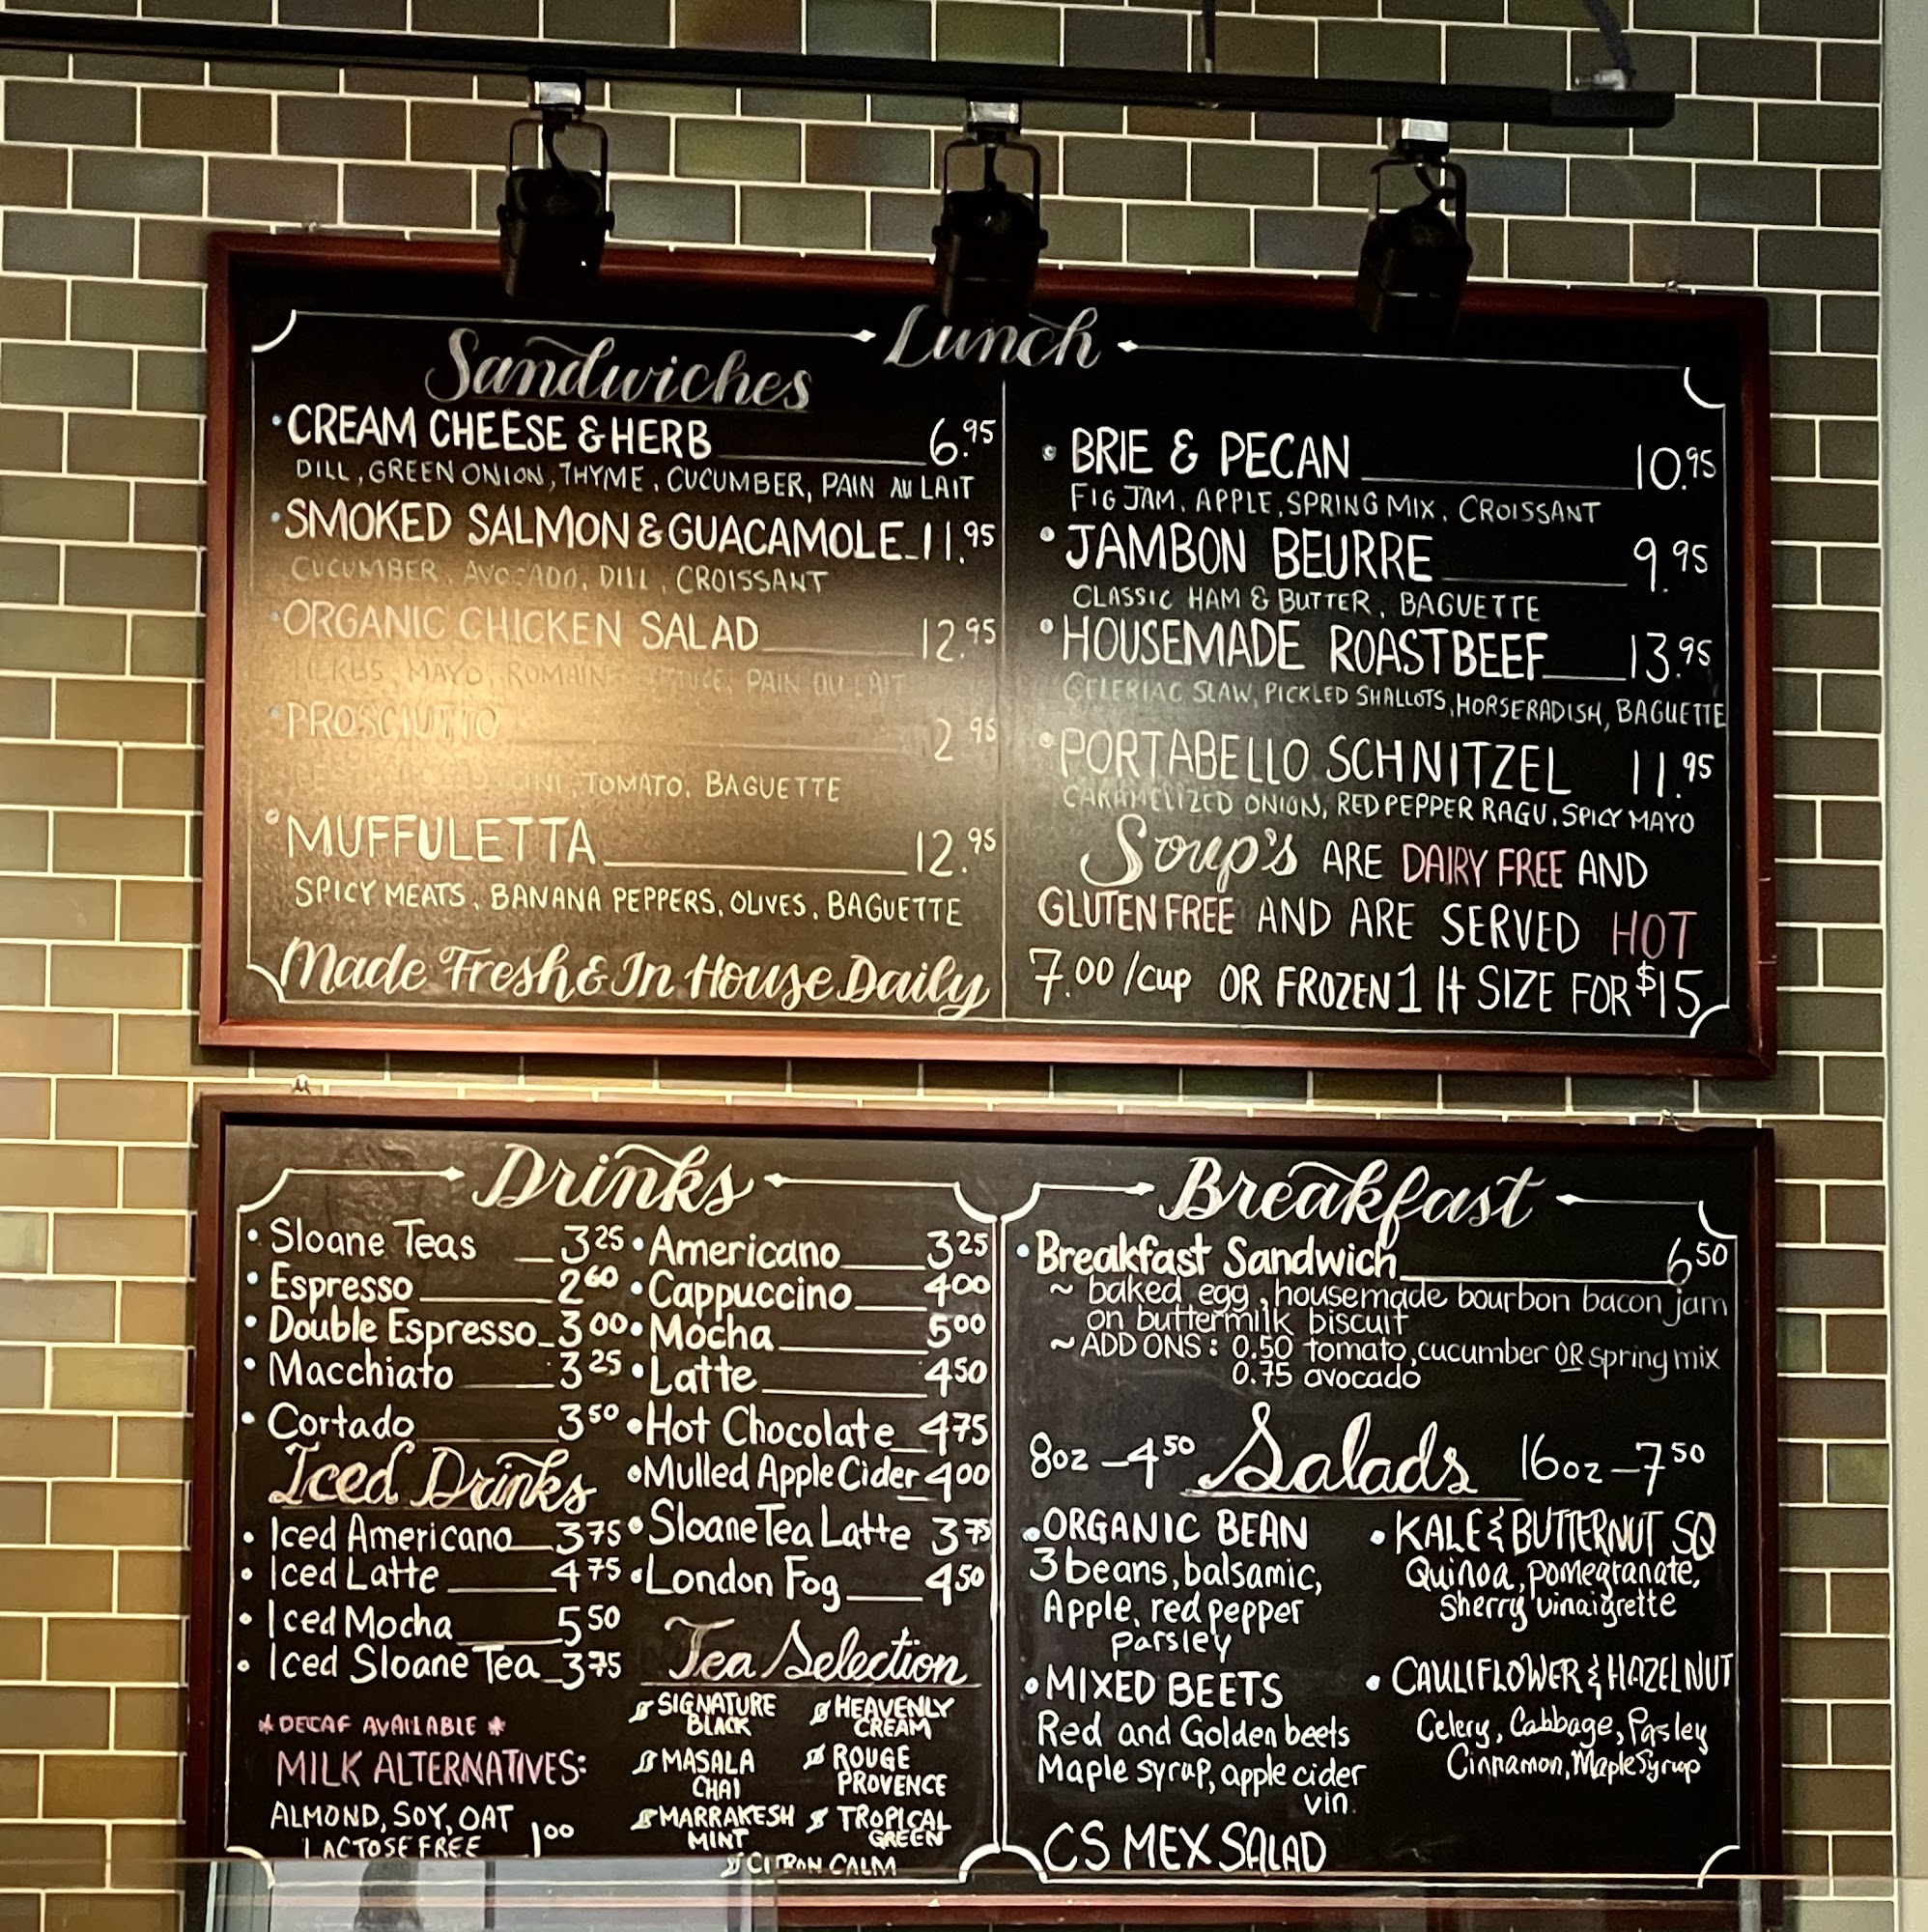 Lunch
Sandwiches
• CREAM CHEESE & HERB 6.95
DILL, GREEN ONION, THYME, CUCUMBER, PAIN AU LAIT
• SMOKED SALMON & GUACAMOLE 11.95
CUCUMBER, AVOCADO, DILL, CROISSANT
• ORGANIC CHICKEN SALAD 12.95
HERBS, MAYO, ROMAINE LETTUCE, PAIN OU LAIT
• PROSCIUTTO 2.95
TOMATO, BAGUETTE
• MUFFULETTA 12.95
SPICY MEATS, BANANA PEPPERS, OLIVES, BAGUETTE
Made Fresh & In House Daily
• BRIE & PECAN 10.95
FIG JAM, APPLE, SPRING MIX, CROISSANT
• JAMBON BEURRE 9.95
CLASSIC HAM & BUTTER, BAGUETTE
• HOUSEMADE ROASTBEEF 13.95
CELERIAC SLAW, PICKLED SHALLOTS, HORSERADISH, BAGUETTE
• PORTABELLO SCHNITZEL 11.95
CARAMELIZED ONION, RED PEPPER RAGU, SPICY MAYO
Soup's ARE DAIRY FREE AND
GLUTEN FREE AND ARE SERVED HOT
7.00/cup OR FROZEN 1 lt SIZE FOR $15
Drinks
• Sloane Teas 3.25
• Espresso 2.60
• Double Espresso 3.00
• Macchiato 3.25
• Cortado 3.50
Iced Drinks
• Iced Americano 3.75
• Iced Latte 4.75
• Iced Mocha 5.50
• Iced Sloane Tea 3.75
* DECAF AVAILABLE *
MILK ALTERNATIVES:
ALMOND, SOY, OAT
LACTOSE FREE 1.00
• Americano 3.25
• Cappuccino 4.00
• Mocha 5.00
• Latte 4.50
• Hot Chocolate 4.75
• Mulled Apple Cider 4.00
• Sloane Tea Latte 3.75
• London Fog 4.50
Tea Selection
SIGNATURE
BLACK
MASALA
CHAI
MARRAKESH
MINT
HEAVENLY
CREAM
ROUGE
PROVENCE
TROPICAL
GREEN
CITRON CALM
Breakfast
• Breakfast Sandwich 6.50
~ baked egg, housemade bourbon bacon jam
on buttermilk biscuit
~ ADD ONS: 0.50 tomato, cucumber OR spring mix
0.75 avocado
8oz – 4.50 Salads 16oz – 7.50
• ORGANIC BEAN
3 beans, balsamic,
Apple, red pepper
parsley
• MIXED BEETS
Red and Golden beets
Maple syrup, apple cider
vin.
CS MEX SALAD
• KALE & BUTTERNUT SQ
Quinoa, pomegranate,
Sherry vinaigrette
• CAULIFLOWER & HAZELNUT
Celery, Cabbage, Pasley
Cinnamon, Maple Syrup